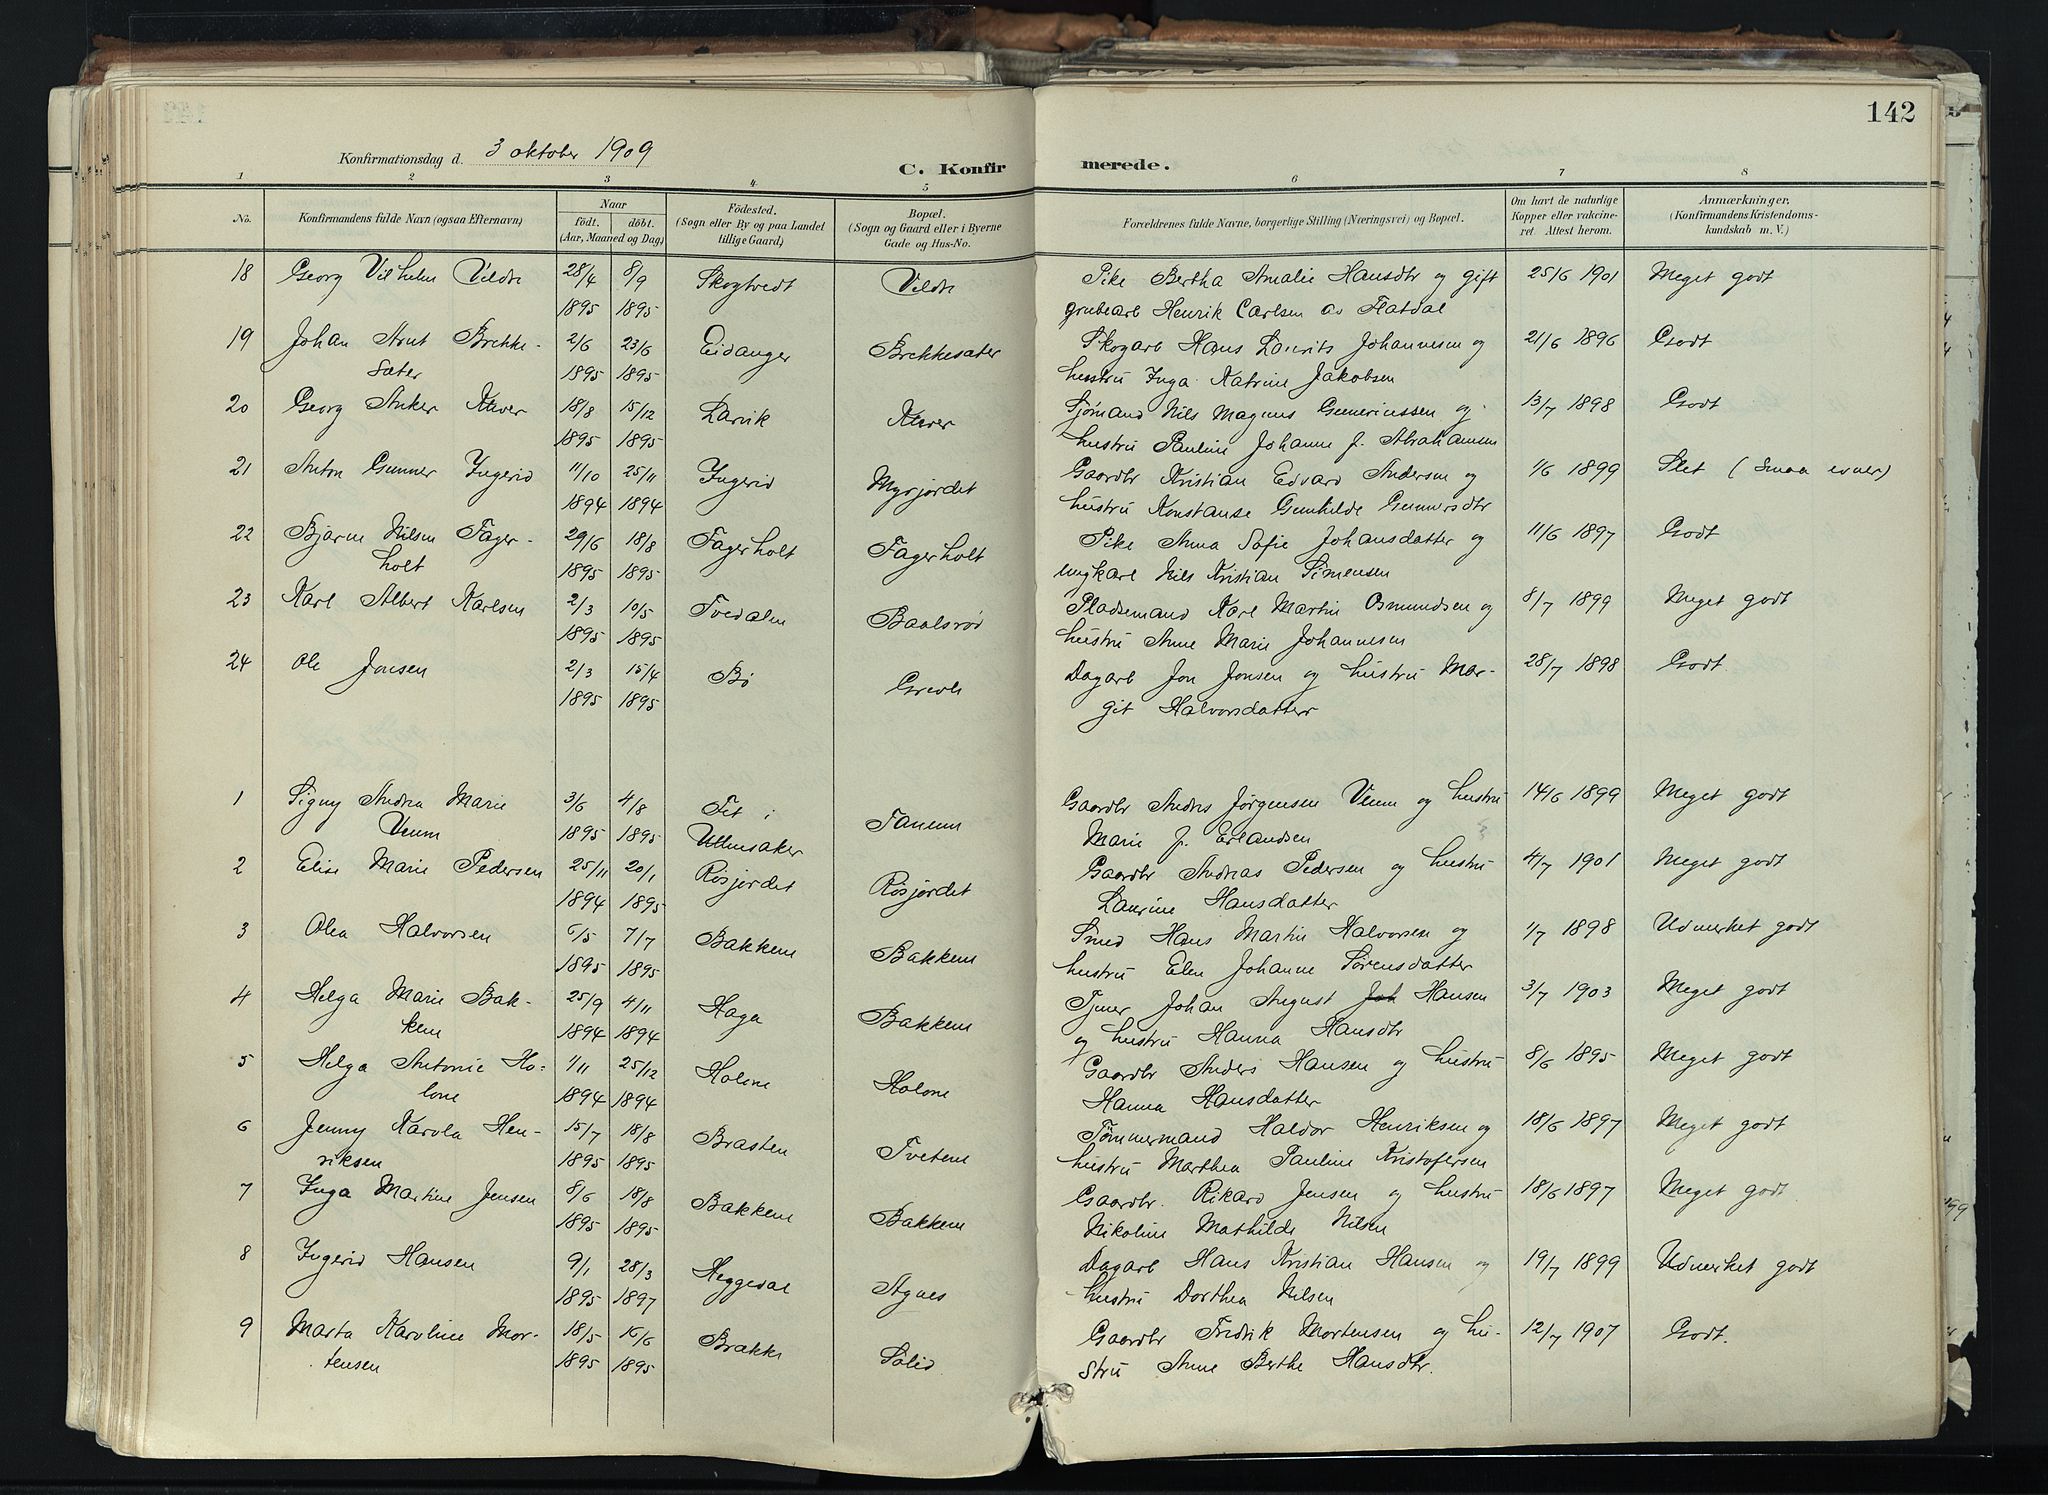 142
Konfirmationsdag d. 3 oktober 1909
C. Konfirmerede.
1 2 3 4 5 6 7 8
No. Konfirmandens fulde Navn (ogsaa Efternavn) Naar födt. döbt. (Aar, Maaned og Dag) Födested. (Sogn eller By og paa Landet tillige Gaard) Bopæl. (Sogn og Gaard eller i Byerne Gade og Hus-No. Forældrenes fulde Navne, borgerlige Stilling (Næringsvei) og Bopæl. Om havt de naturlige Kopper eller vakcineret. Attest herom. Anmærkninger, (Konfirmandens Kristendomskundskab m. V.)
18 Georg Vilhelm Vildre 28/4 8/9 Skogtvedt Vildre Pike Bertha Amalie Hansdtr og gift 25/6 1901 Meget godt
1895 1895 grubearb Henrik Carlsen av Flatdal
19 Johan Arnt Brekke- 2/6 23/6 Eidanger Brekkesæter Skogarb Hans Laurits Johannesen og 21/6 1896 Godt
sæter 1895 1895 hustru Inga Katrine Jakobsen
20 Georg Anker Kløver 18/8 15/12 Larvik Kløver Sjømand Nils Magnus Guneriussen og 13/7 1898 Godt
1895 1895 hustru Pauline Johanne f. Abrahamsen
21 Anton Gunner Ingerid 11/10 25/11 Ingerid Myrjordet Gaardbr Kristian Edvard Andersen og 1/6 1899 Slet (smaa evner)
1894 1894 hustru Konstanse Gunhilde Gunnersdtr
22 Bjarne Nilsen Fager- 29/6 18/8 Fagerholt Fagerholt Pike Anna Sofie Johansdatter og 11/6 1897 Godt
holt 1895 1895 ungkarl Nils Kristian Simensen
23 Karl Albert Karlsen 2/3 10/5 Tvedalen Baalsrød Pladsemand Karl Martin Osmundsen og 8/7 1899 Meget godt
1895 1895 hustru Anne Marie Johannesen
24 Ole Jonsen 2/3 15/4 Bø Grevle Dagarb Jon Jonsen og hustru Mar- 28/7 1898 Godt
1895 1895 git Halvorsdatter
1 Signy Andrea Marie 3/6 4/8 Fet i Tanum Gaardbr Andres Jørgensen Venm og hustru 14/6 1899 Meget godt
1895 1895 Ullensaker Marie f. Erlandsen
2 Elise Marie Pedersen 25/11 20/1 Røsjordet Røsjordet Gaardbr Andreas Pedersen og hustru 4/7 1901 Meget godt
1894 1895 Laurine Hansdatter
3 Olea Halvorsen 6/5 7/7 Bakkene Bakkene Smed Hans Martin Halvorsen og 1/7 1898 Udmerket godt
1895 1895 hustru Elen Johanne Sørensdatter
4 Helga Marie Bak- 25/9 4/11 Haga Bakkene Tjener Johan August Joh Hansen 3/7 1903 Meget godt
kene 1894 1894 og hustru Hanna Hansdtr
5 Helga Antonie Ho- 1/11 25/12 Holone Holone Gaardbr Anders Hansen og hustru 8/6 1895 Meget godt
lone 1894 1894 Hanna Hansdatter
6 Jenny Karola Hen- 15/7 18/8 Brasten Tvetene Tømmermand Haldor Henriksen og 18/6 1897 Meget godt
riksen 1895 1895 hustru Marthea Pauline Kristofersen
7 Inga Martine Jensen 8/6 18/8 Bakkene Bakkene Gaardbr. Rikard Jensen og hustru 18/6 1897 Meget godt
1895 1895 Nikoline Mathilde Nilsen
8 Ingerid Hansen 9/1 28/3 Heggedal Agnes Dagarb Hans Kristian Hansen og 19/7 1899 Udmerket godt
1895 1897 hustru Dorthea Nilsen
9 Marta Karoline Mor- 18/5 16/6 Brække Solid Gaardbr Fredrik Mortensen og hu- 12/7 1907 Godt.
tensen 1895 1895 stru Anne Berthe Hansdtr.